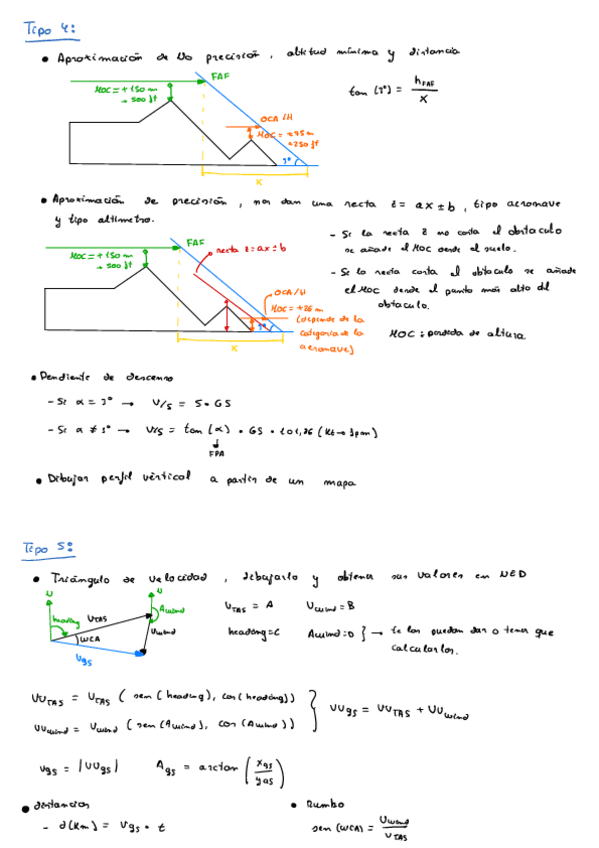 Tipo 4:
• Aproximación de No precisión, altitud mínima y distancia
FAF
MOC = +150 m
→ 500 ft
tan (3°) = hFAF / x
OCA/H
MOC = +75 m
+250 ft
3°
x
• Aproximación de precisión, nos dan una recta z = ax ± b, tipo aeronave
y tipo altímetro.
- Si la recta z no corta el obstáculo
se añade el MOC desde el suelo.
FAF
recta z = ax ± b
MOC = +150 m
→ 500 ft
- Si la recta corta el obstaculo se añade
el MOC desde el punto más alto del
obstaculo.
OCA/H
MOC = +26 m
(depende de la
categoría de la
aeronave)
3°
x
MOC: perdida de altura
• Pendiente de descenso
- Si α = 3° → V/S = 5 • GS
- Si α ≠ 3° → V/S = tan (α) • GS • 101,26 (kt → fpm)
FPA
• Dibujar perfil vértical a partir de un mapa
Tipo 5:
• Triángulo de velocidad, dibujarlo y obtener sus valores en NED
N
N
heading
UTAS
Awind
WCA
Uwind
Ugs
UTAS = A
Uwind = B
heading = C
Awind = D } → te los puedan dar o tener que
calcularlos.
UUTAS = UTAS (sen (heading), cos (heading))
UUwind = Uwind (sen (Awind), cos (Awind))
} UUgs = UUTAS + UUwind
Ugs = |UUgs|
Ags = arctan (xgs / ygs)
• distancias
- d(km) = Vgs • t
• Rumbo
sen (WCA) = Uwind / UTAS